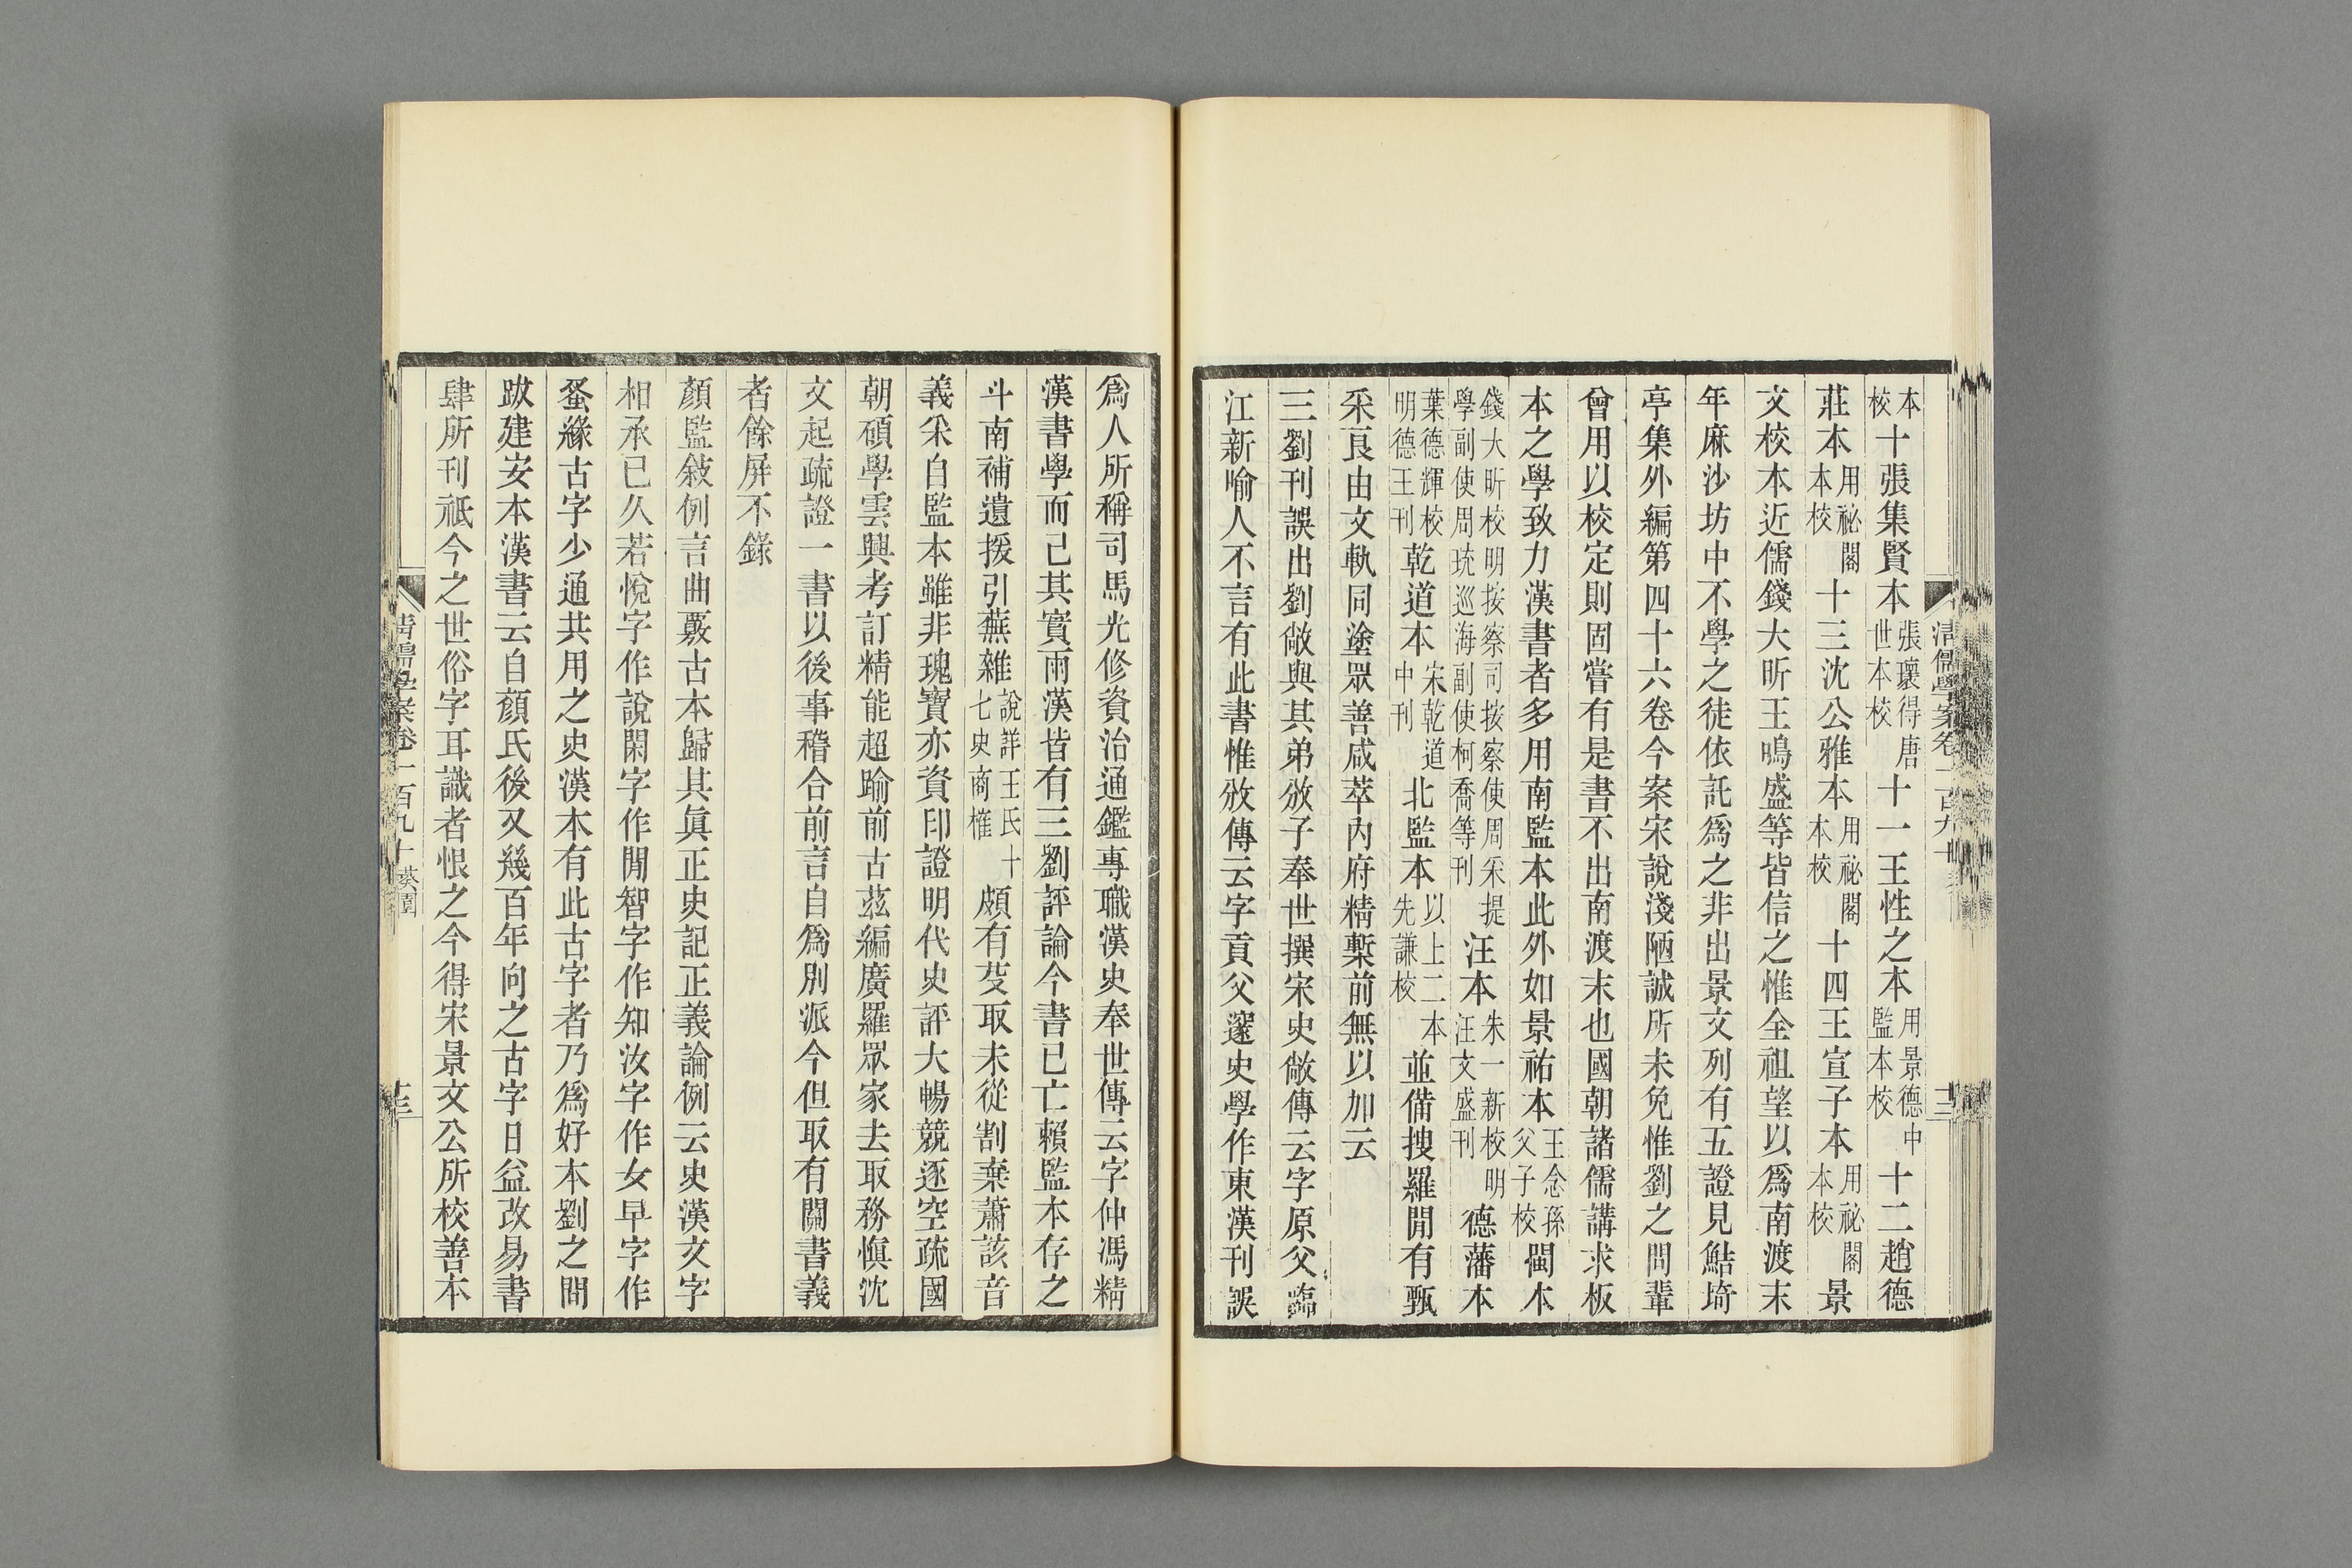 本校十張集賢本張瓌得唐世本校十一王性之本用景德中監本校十二趙德
莊本用祕閣本校十三沈公雅本用祕閣本校十四王宣子本用祕閣本校景
文校本近儒錢大昕王鳴盛等皆信之惟全祖望以爲南渡末
年麻沙坊中不學之徒依託爲之非出景文列有五證見鮚埼
亭集外編第四十六卷今案宋說淺陋誠所未免惟劉之問輩
曾用以校定則固嘗有是書不出南渡末也國朝諸儒講求板
本之學致力漢書者多用南監本此外如景祐本王念孫父子校閩本
錢大昕校明按察司按察使周采提學副使周珫巡海副使柯喬等刊汪本朱一新校明汪文盛刊德藩本
葉德輝校明德王刊乾道本宋乾道中刊北監本以上二本先謙校並備搜羅閒有甄
采艮由文軌同塗眾善咸萃內府精槧前無以加云
三劉刊誤出劉敞與其弟攽子奉世撰宋史敞傳云字原父臨
江新喻人不言有此書惟攽傳云字貢父邃史學作東漢刊誤
爲人所稱司馬光修資治通鑑專職漢史奉世傳云字仲馮精
漢書學而已其實兩漢皆有三劉評論今書已亡賴監本存之
斗南補遺援引蕪雜說詳王氏十七史商榷頗有芟取未從割棄蕭該音
義采自監本雖非瑰寶亦資印證明代史評大暢競逐空疏國
朝碩學雲興考訂精能超踰前古茲編廣羅眾家去取務愼沈
文起疏證一書以後事稽合前言自爲別派今但取有關書義
者餘屏不錄
顏監敘例言曲覈古本歸其眞正史記正義論例云史漢文字
相承已久若悅字作說閑字作閒智字作知汝字作女早字作
蚤緣古字少通共用之史漢本有此古字者乃爲好本劉之問
跋建安本漢書云自顏氏後又幾百年向之古字日益改易書
肆所刊祇今之世俗字耳識者恨之今得宋景文公所校善本
清儒學案卷一百九十 葵園